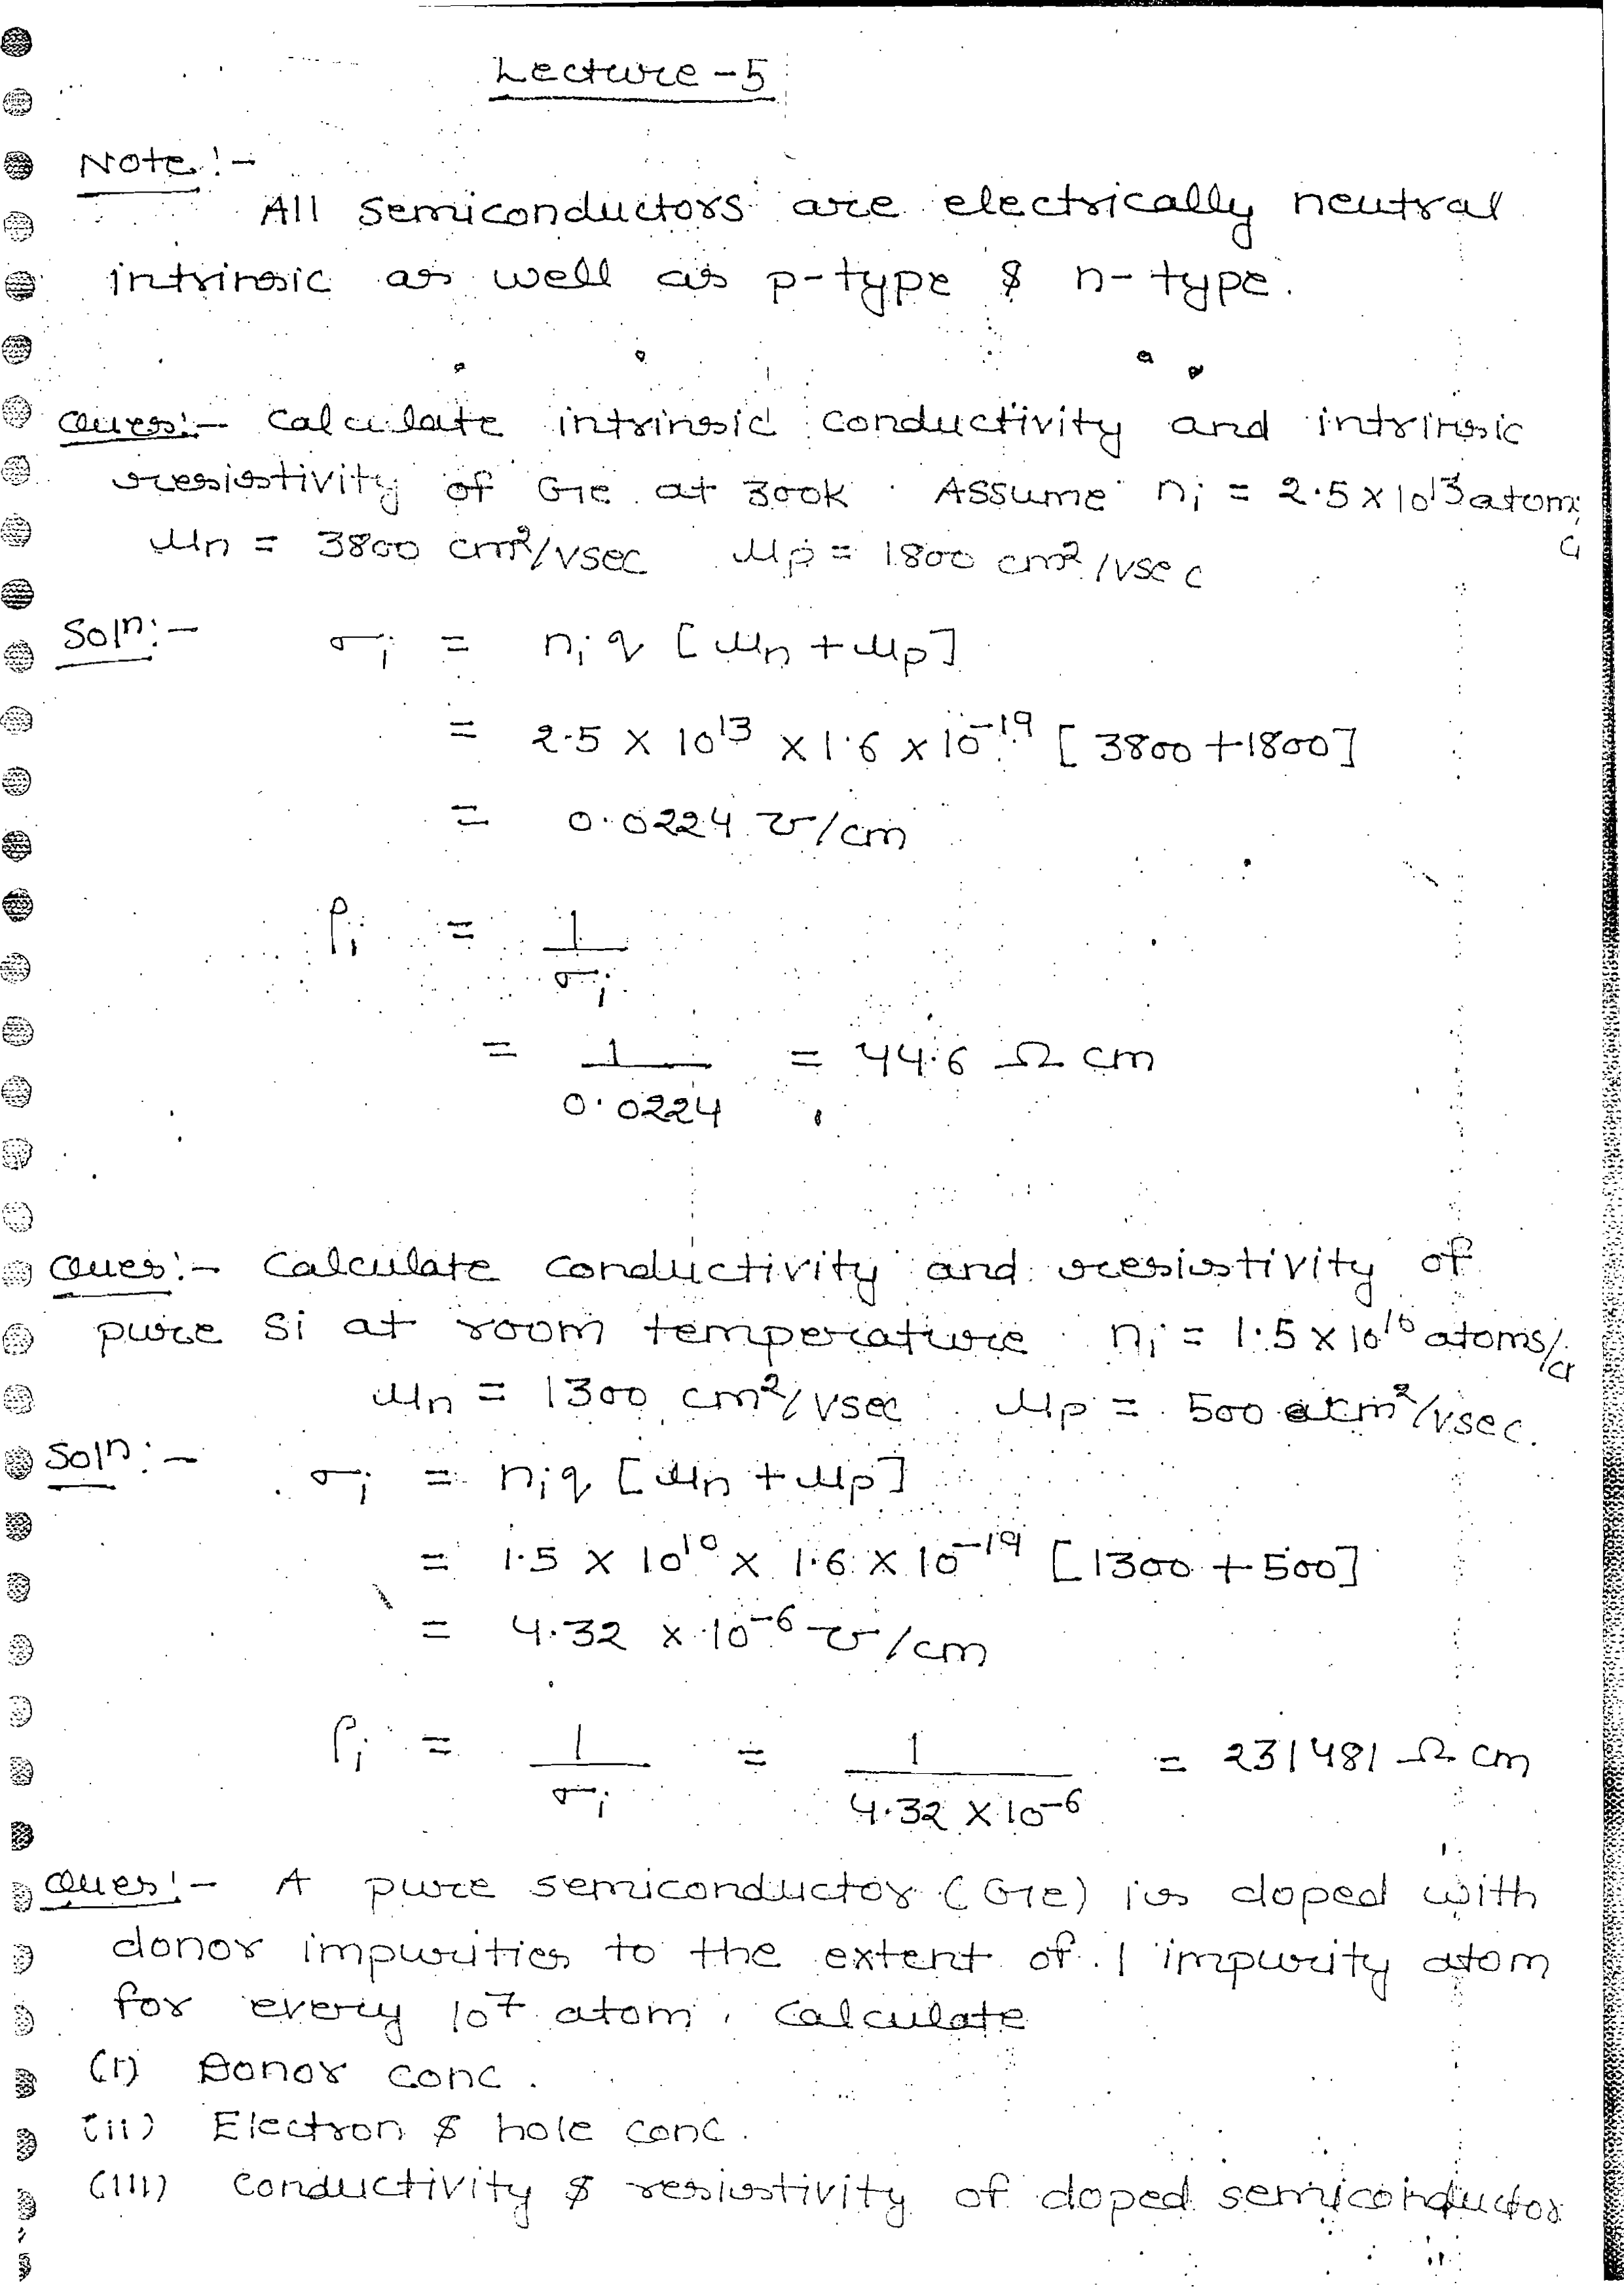 Lecture-5
Note:-
All semiconductors are electrically neutral
intrinsic as well as p-type & n-type.
Ques:- Calculate intrinsic conductivity and intrinsic
resistivity of Ge at 300K. Assume nᵢ = 2.5 × 10¹³ atom
μn = 3800 cm²/vsec μp = 1800 cm²/vsec
Solⁿ:- σᵢ = nᵢq [μn + μp]
= 2.5 × 10¹³ × 1.6 × 10⁻¹⁹ [3800 + 1800]
= 0.0224 ℧/cm
ρᵢ = 1/σᵢ
= 1/0.0224 = 44.6 Ω cm
Ques:- Calculate conductivity and resistivity of
pure Si at room temperature. nᵢ = 1.5 × 10¹⁰ atoms/c
μn = 1300 cm²/vsec μp = 500 cm²/vsec.
Solⁿ:- σᵢ = nᵢq [μn + μp]
= 1.5 × 10¹⁰ × 1.6 × 10⁻¹⁹ [1300 + 500]
= 4.32 × 10⁻⁶ ℧/cm
ρᵢ = 1/σᵢ = 1/4.32 × 10⁻⁶ = 231481 Ω cm
Ques:- A pure semiconductor (Ge) is doped with
donor impurities to the extent of 1 impurity atom
for every 10⁷ atom. Calculate
(i) Donor conc.
(ii) Electron & hole conc.
(iii) conductivity & resistivity of doped semiconductor